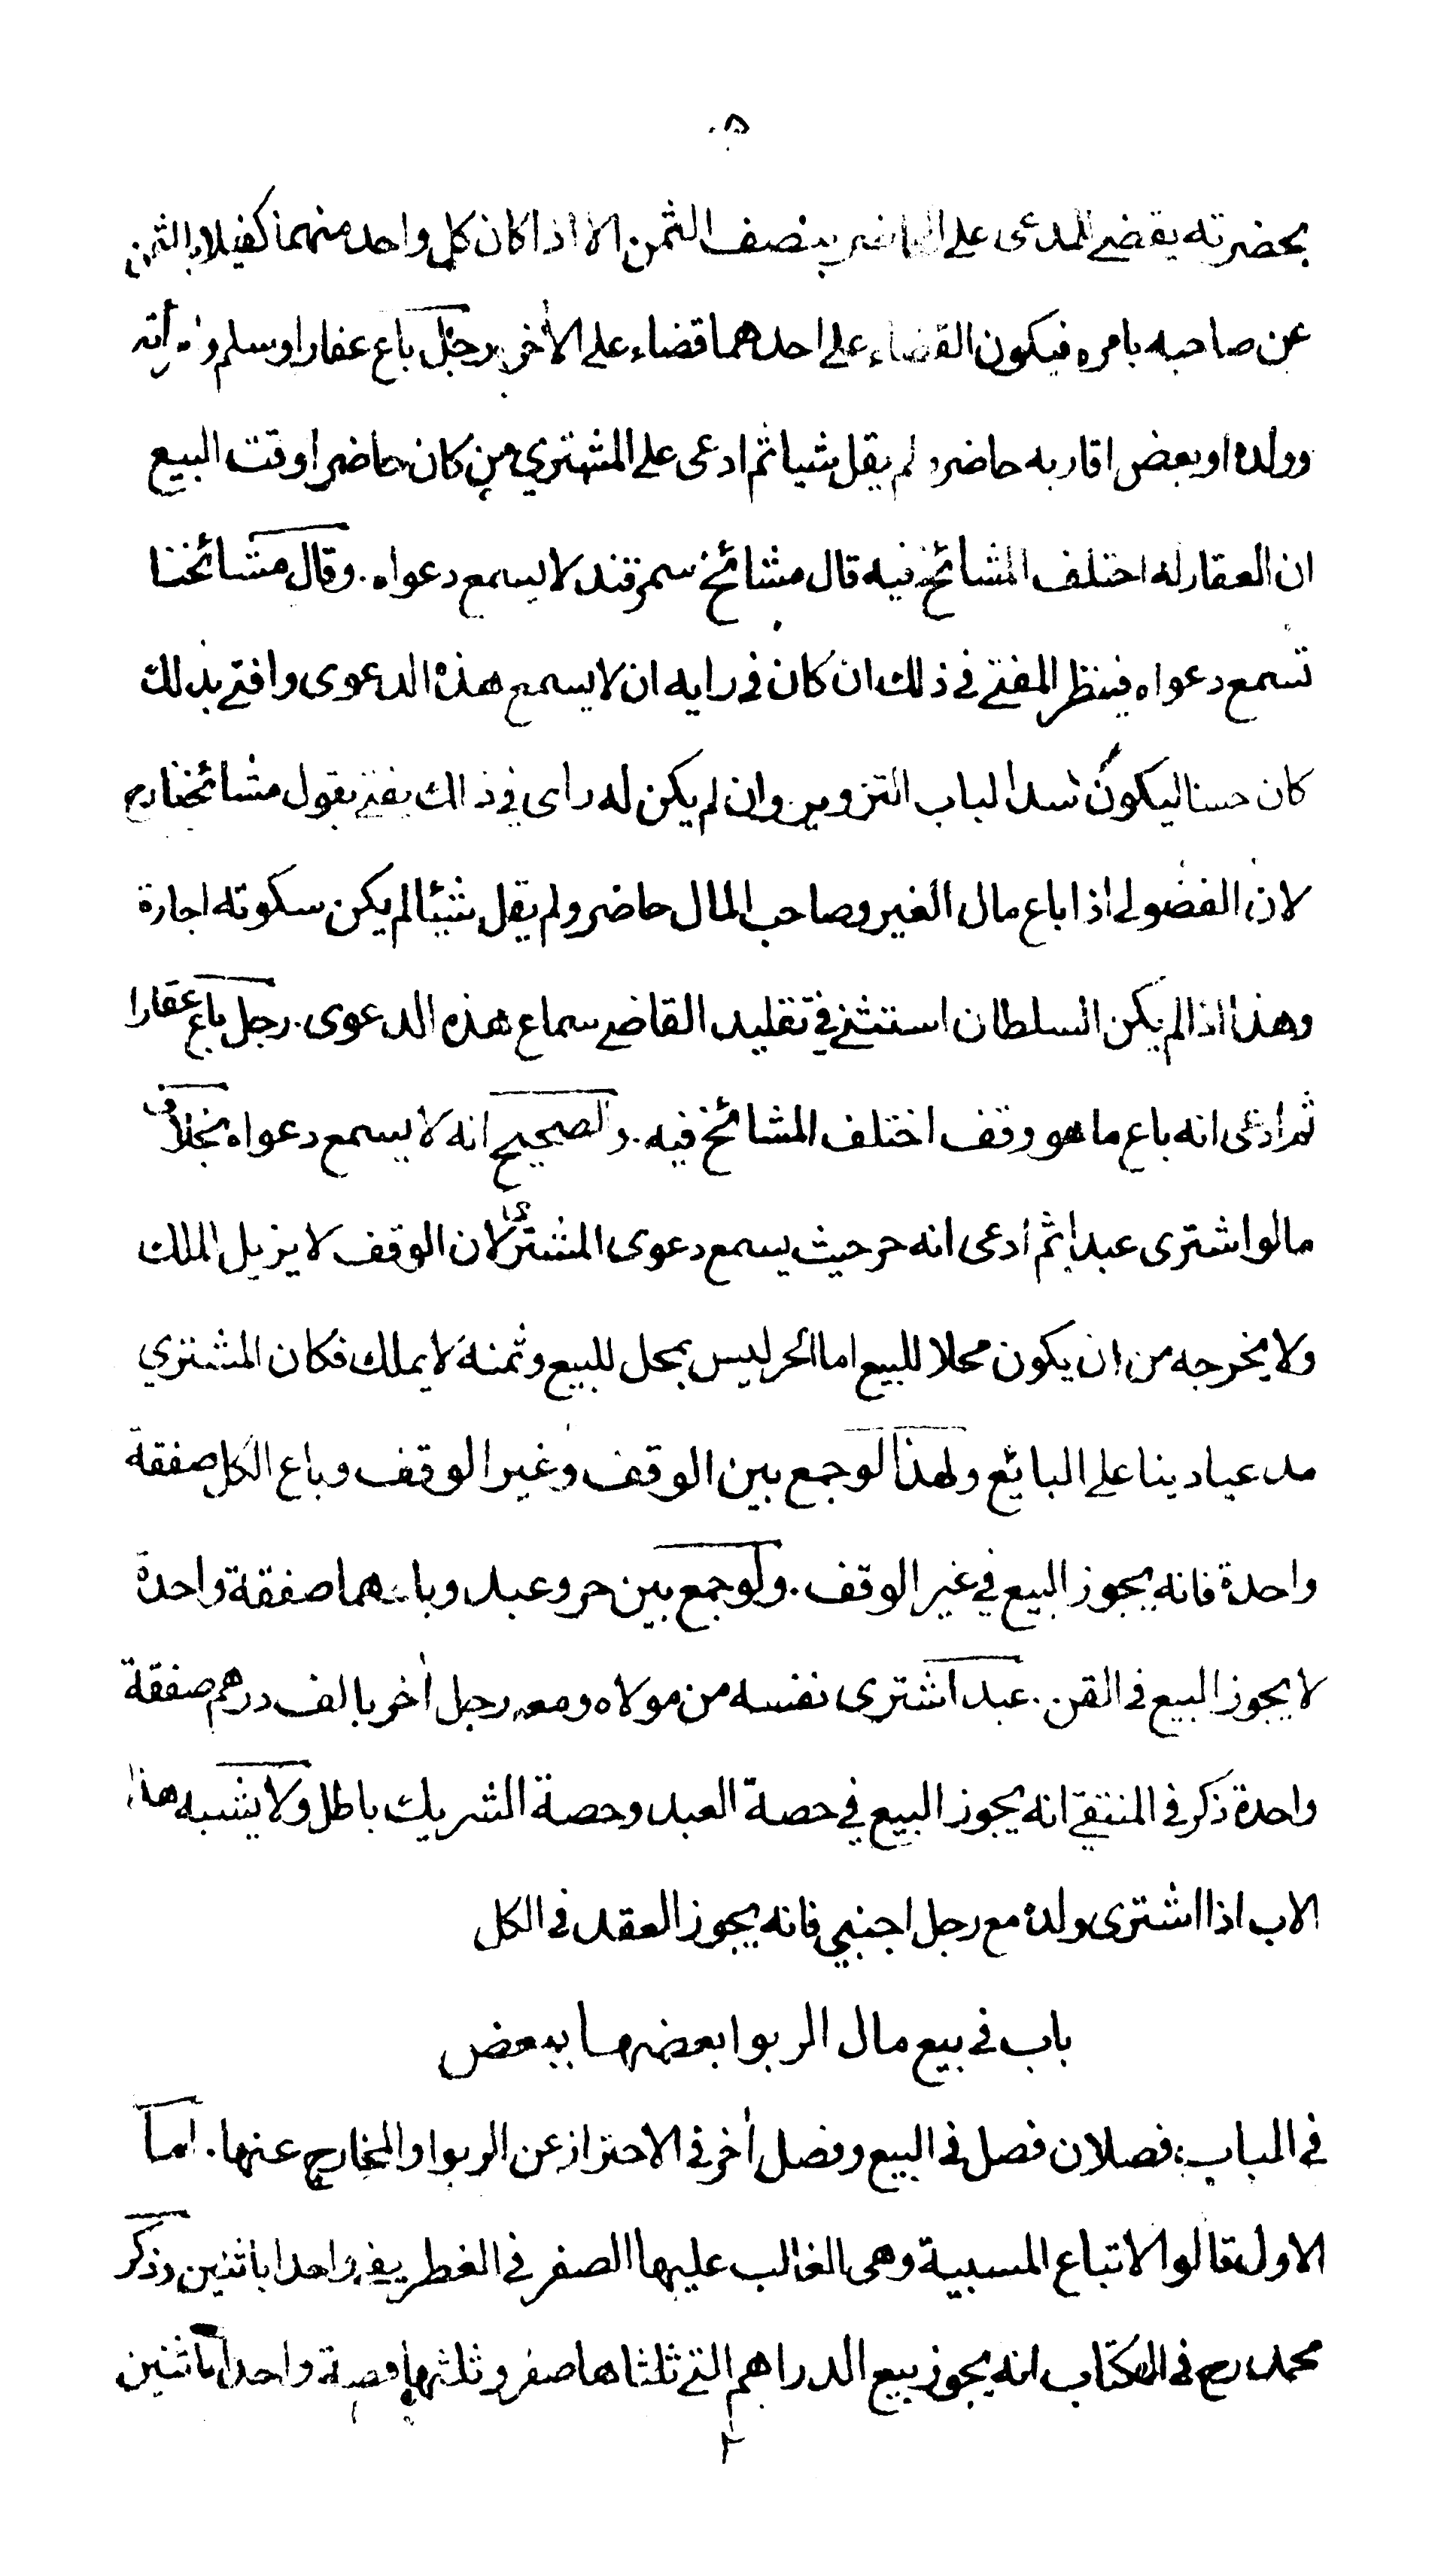 بحضرته يقضي للمدعى على الحاضر بنصف الثمن الا اذا كان كل واحد منهما كفيلا بالثمن
عن صاحبه بامره فيكون القضاء على احدهما قضاء على الأخر رجل باع عقارا وسلم وامرأته
وولده او بعض اقاربه حاضر ولم يقل شيا ثم ادعى على المشتري من كان حاضرا وقت البيع
ان العقار له اختلف المشائخ فيه قال مشائخ سمرقند لا يسمع دعواه . وقال مشائخنا
تسمع دعواه فينظر المفتي في ذلك ان كان في رايه ان لا يسمع هذه الدعوى وافتى بذلك
كان حسنا ليكون سدا لباب التزوير وان لم يكن له راى في ذلك يفتي بقول مشائخنا رح
لان الفضولى اذا باع مال الغير وصاحب المال حاضر ولم يقل شيئا لم يكن سكوته اجازة
وهذا اذا لم يكن السلطان استثنى في تقليد القاضي سماع هذه الدعوى . رجل باع عقارا
ثم ادعى انه باع ما هو وقف اختلف المشائخ فيه . والصحيح انه لا يسمع دعواه بخلاف
ما لو اشترى عبدا ثم ادعى انه حر حيث يسمع دعوى المشترى لان الوقف لا يزيل الملك
ولا يخرجه من ان يكون محلا للبيع اما الحر ليس بمحل للبيع وثمنه لا يملك فكان المشتري
مدعيا دينا على البائع ولهذا لو جمع بين الوقف وغير الوقف وباع الكل صفقة
واحدة فانه يجوز البيع في غير الوقف . ولو جمع بين حر وعبد وباعهما صفقة واحدة
لا يجوز البيع في القن . عبد اشترى نفسه من مولاه ومعه رجل أخر بالف درهم صفقة
واحدة ذكر في المنتقي انه يجوز البيع في حصة العبد وحصة الشريك باطل ولا يشبه هذا
الاب اذا اشترى ولده مع رجل اجنبي فانه يجوز العقد في الكل
باب في بيع مال الربوا بعضها ببعض
في الباب فصلان فصل في البيع وفصل أخر في الاحتراز عن الربوا والمخارج عنها . اما
الاول قالوا لا تباع المسبية وهي الغالب عليها الصفر في الغطريفي واحدا باثنين وذكر
محمد رح في الكتاب انه يجوز بيع الدراهم التي ثلثاها صفر وثلثها فضة واحدا باثنين